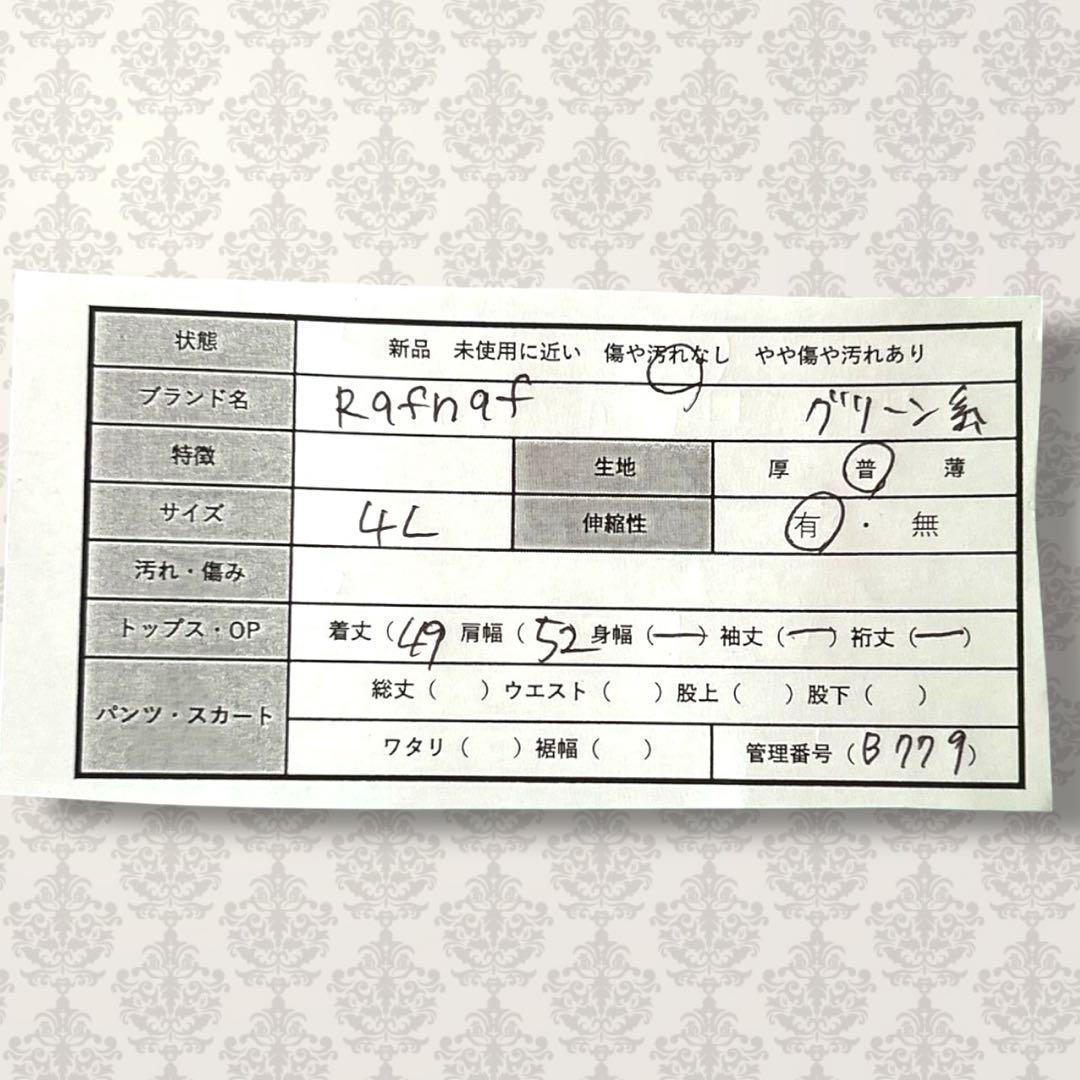 状態 新品 未使用に近い 傷や汚れなし やや傷や汚れあり
ブランド名 Rafnaf グリーン系
特徴 生地 厚 普 薄
サイズ 4L 伸縮性 有 ・ 無
汚れ・傷み
トップス・OP 着丈（49 肩幅（52 身幅（ー）袖丈（ー）裄丈（ー）
パンツ・スカート 総丈（ ）ウエスト（ ）股上（ ）股下（ ）
ワタリ（ ）裾幅（ ） 管理番号（B779）